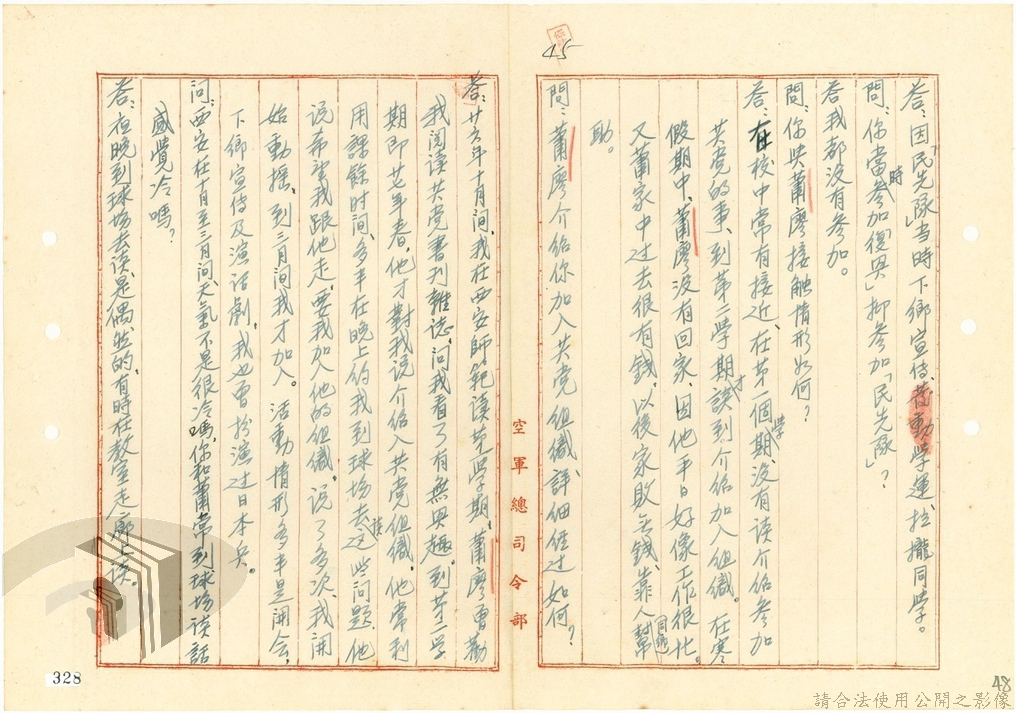 45
答：因「民先隊」当時下鄉宣传、发動学運、拉攏同学。
問：你當時参加「復興」抑参加「民先隊」？
答 我都没有参加。
問：你與蕭廖接触情形如何？
答：在校中常有接近、在第一個学期、没有谈介绍参加
共党的事、到第二学期才談到介绍加入组織。在寒
假期中、蕭廖没有回家、因他平日好像工作很忙。
又蕭家中过去很有錢、以後家敗无錢、靠人幫
助。
問：蕭廖介绍你加入共党组織、詳细经过如何？
空軍總司令部
答：廿六年十月间、我在西安師範读第一学期、蕭廖曾勸
我阅读共党書刊雜誌、问我看了有無興趣。到第二学
期即廿七年春、他才對我说介绍入共党组織。他常利
用課餘时间、多半在晚上约我到球场去谈这些问题、他
说希望我跟他走、要我加入他的组織、说了多次、我開
始動摇、到三月间我才加入。活動情形多半是開会、
下鄉宣传及演话劇、我也曾扮演过日本兵。
問：西安在十月至三月间、天氣不是很冷嗎、你和蕭常到球场谈話
感覺冷嗎？
答：夜晚到球场去谈、是偶然的、有時在教室走廊上谈。
328
48
請合法使用公開之影像